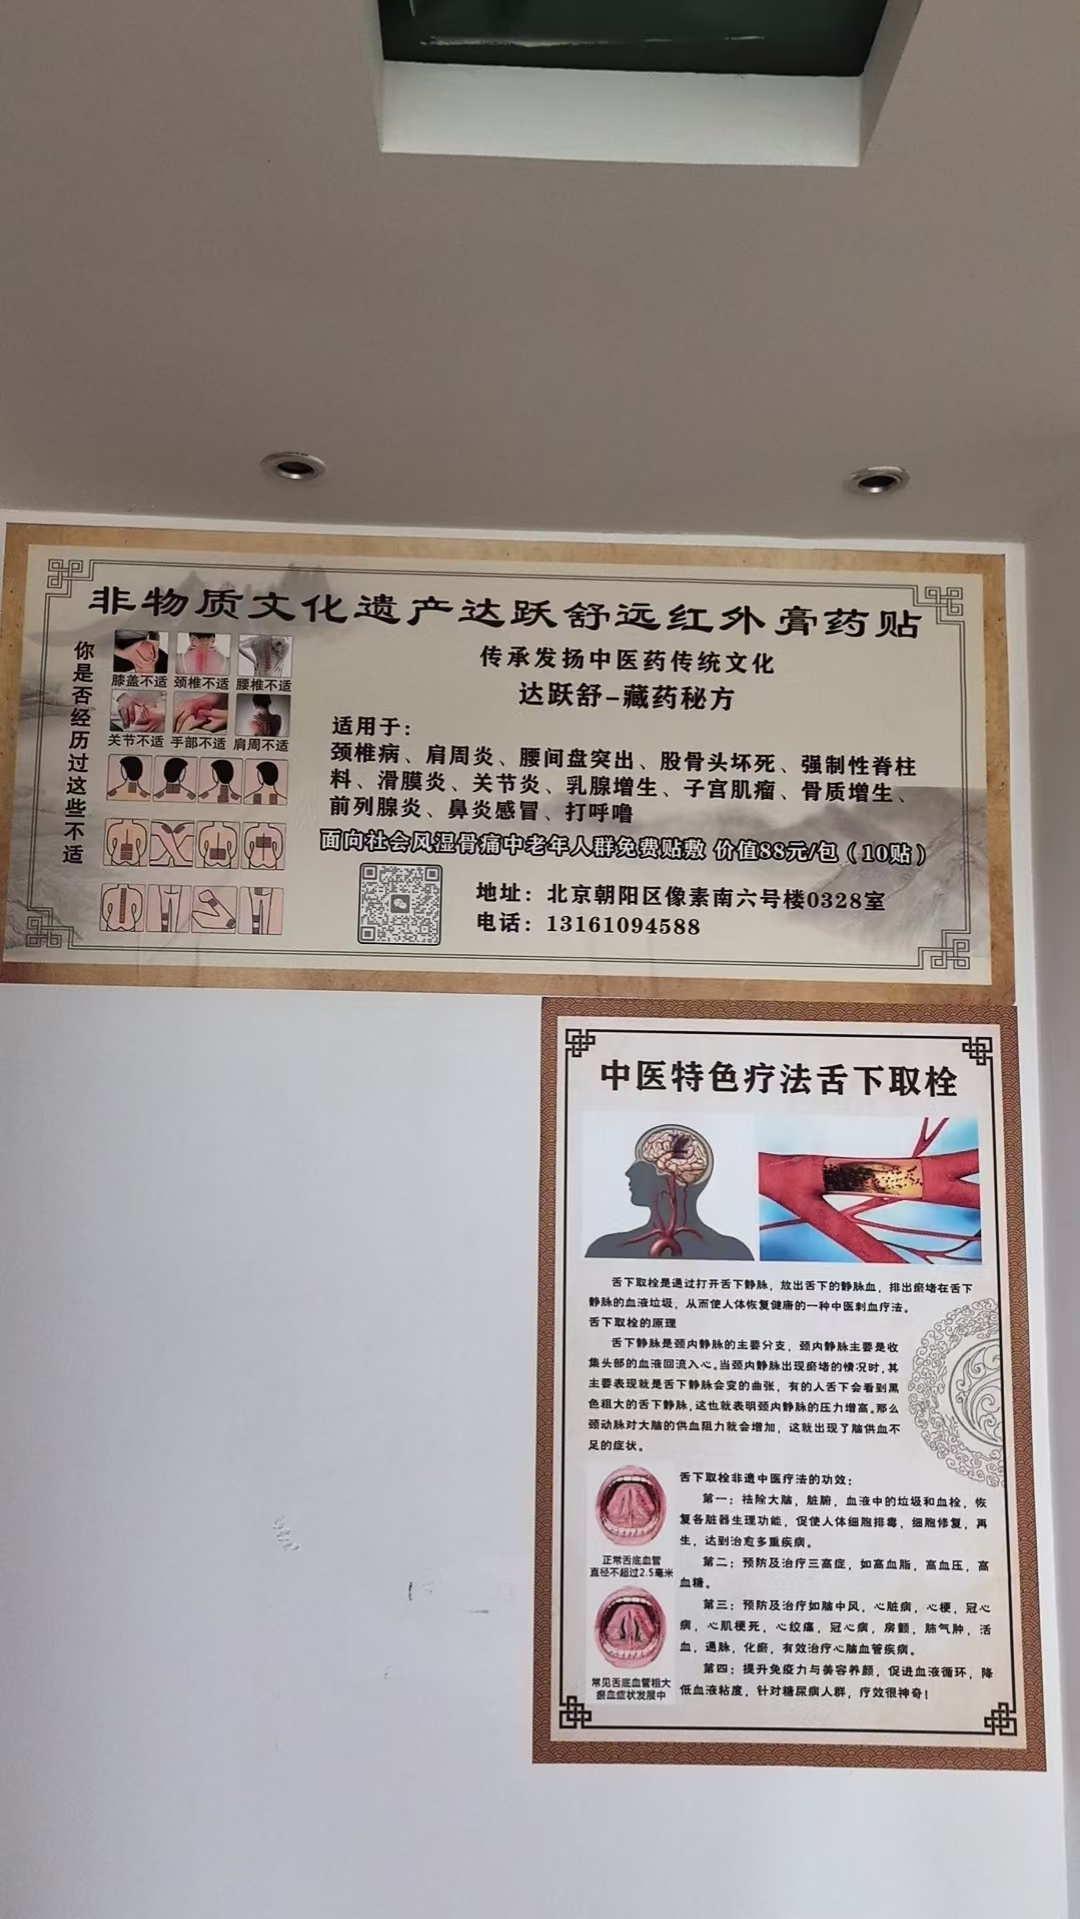 非物质文化遗产达跃舒远红外膏药贴
你是否经历过这些不适
膝盖不适 颈椎不适 腰椎不适
关节不适 手部不适 肩周不适
传承发扬中医药传统文化
达跃舒-藏药秘方
适用于：
颈椎病、肩周炎、腰间盘突出、股骨头坏死、强制性脊柱
料、滑膜炎、关节炎、乳腺增生、子宫肌瘤、骨质增生、
前列腺炎、鼻炎感冒、打呼噜
面向社会风湿骨痛中老年人群免费贴敷 价值88元/包（10贴）
地址：北京朝阳区像素南六号楼0328室
电话：13161094588
中医特色疗法舌下取栓
舌下取栓是通过打开舌下静脉，放出舌下的静脉血，排出瘀堵在舌下
静脉的血液垃圾，从而使人体恢复健康的一种中医刺血疗法。
舌下取栓的原理
舌下静脉是颈内静脉的主要分支，颈内静脉主要是收
集头部的血液回流入心。当颈内静脉出现瘀堵的情况时，其
主要表现就是舌下静脉会变的曲张，有的人舌下会看到黑
色粗大的舌下静脉，这也就表明颈内静脉的压力增高。那么
颈动脉对大脑的供血阻力就会增加，这就出现了脑供血不
足的症状。
舌下取栓非遗中医疗法的功效：
第一：祛除大脑，脏腑，血液中的垃圾和血栓，恢
复各脏器生理功能，促使人体细胞排毒，细胞修复，再
生，达到治愈多重疾病。
第二：预防及治疗三高症，如高血脂，高血压，高
血糖。
第三：预防及治疗如脑中风，心脏病，心梗，冠心
病，心肌梗死，心绞痛，冠心病，房颤，肺气肿，活
血，通脉，化瘀，有效治疗心脑血管疾病。
第四：提升免疫力与美容养颜，促进血液循环，降
低血液粘度，针对糖尿病人群，疗效很神奇！
正常舌底血管
直径不超过2.5毫米
常见舌底血管粗大
瘀血症状发展中